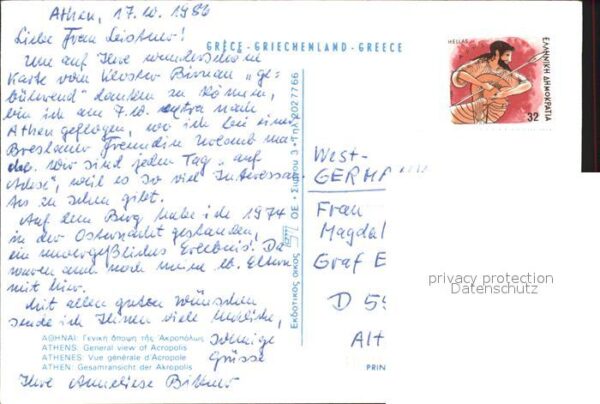 Athen, 17.10.1986
Liebe Frau Leistner!
Um auf Ihre wunderschöne
Karte vom Kloster Birnau "ge-
bührend" danken zu können,
bin ich am 7.10. extra nach
Athen geflogen, wo ich bei einer
Breslauer Freundin Urlaub ma-
che. Wir sind jeden Tag "auf
Achse", weil es so viel Interessan-
tes zu sehen gibt.
Auf dem Burg habe ich 1974
in der Osternacht gestanden,
ein unvergeßliches Erlebnis! Da
waren auch noch meine lb. Eltern
mit hier.
Mit allen guten Wünschen
sende ich Ihnen viele herzliche,
sonnige
Grüsse
Ihre Anneliese Bittner
GRÈCE - GRIECHENLAND - GREECE
ΑΘΗΝΑΙ: Γενική άποψη της Ακροπόλως
ATHENS: General view of Acropolis
ATHENES: Vue générale d'Acropole
ATHEN: Gesamtansicht der Akropolis
Εκδοτικός οίκος ΟΕ • Σίφνου 3 • Τηλ. 2027766
HELLAS
ΕΛΛΗΝΙΚΗ ΔΗΜΟΚΡΑΤΙΑ
32
West-
GERMA
Frau
Magdal
Graf E
D 55
Alt
PRIN
privacy protection
Datenschutz